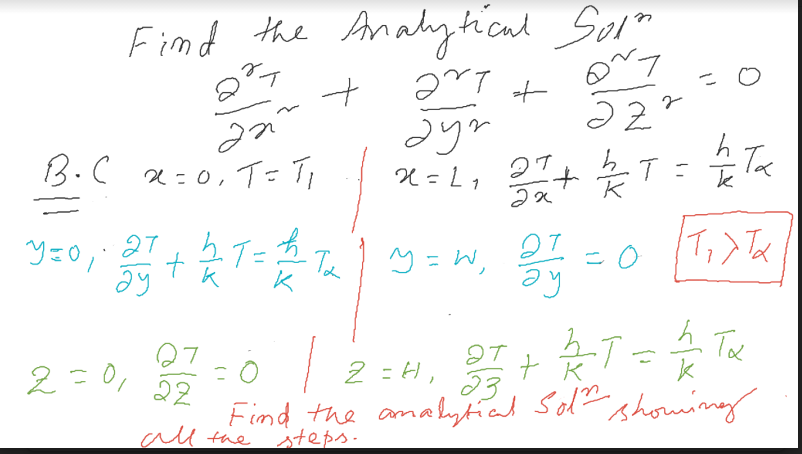 Find the Analytical Solⁿ
∂²T/∂x² + ∂²T/∂y² + ∂²T/∂z² = 0
B.C x=0, T=T₁ | x=L, ∂T/∂x + h/k T = h/k Tα
y=0, ∂T/∂y + h/k T = h/k Tα | y=W, ∂T/∂y = 0 T₁>Tα
z=0, ∂T/∂z = 0 | z=H, ∂T/∂z + h/k T = h/k Tα
Find the analytical Solⁿ showing
all the steps.